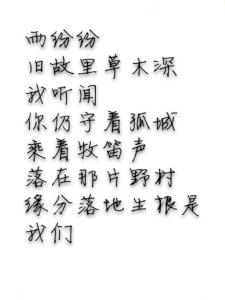 雨纷纷
旧故里草木深
我听闻
你仍守着孤城
乘着牧笛声
落在那片野村
缘分落地生根是
我们